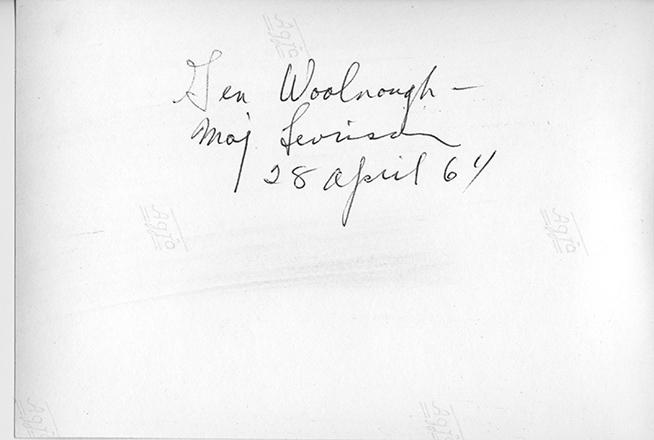 Gen Woolnough -
Maj Levinson
28 April 64
Agfa
Agfa
Agfa
Agfa
Agfa